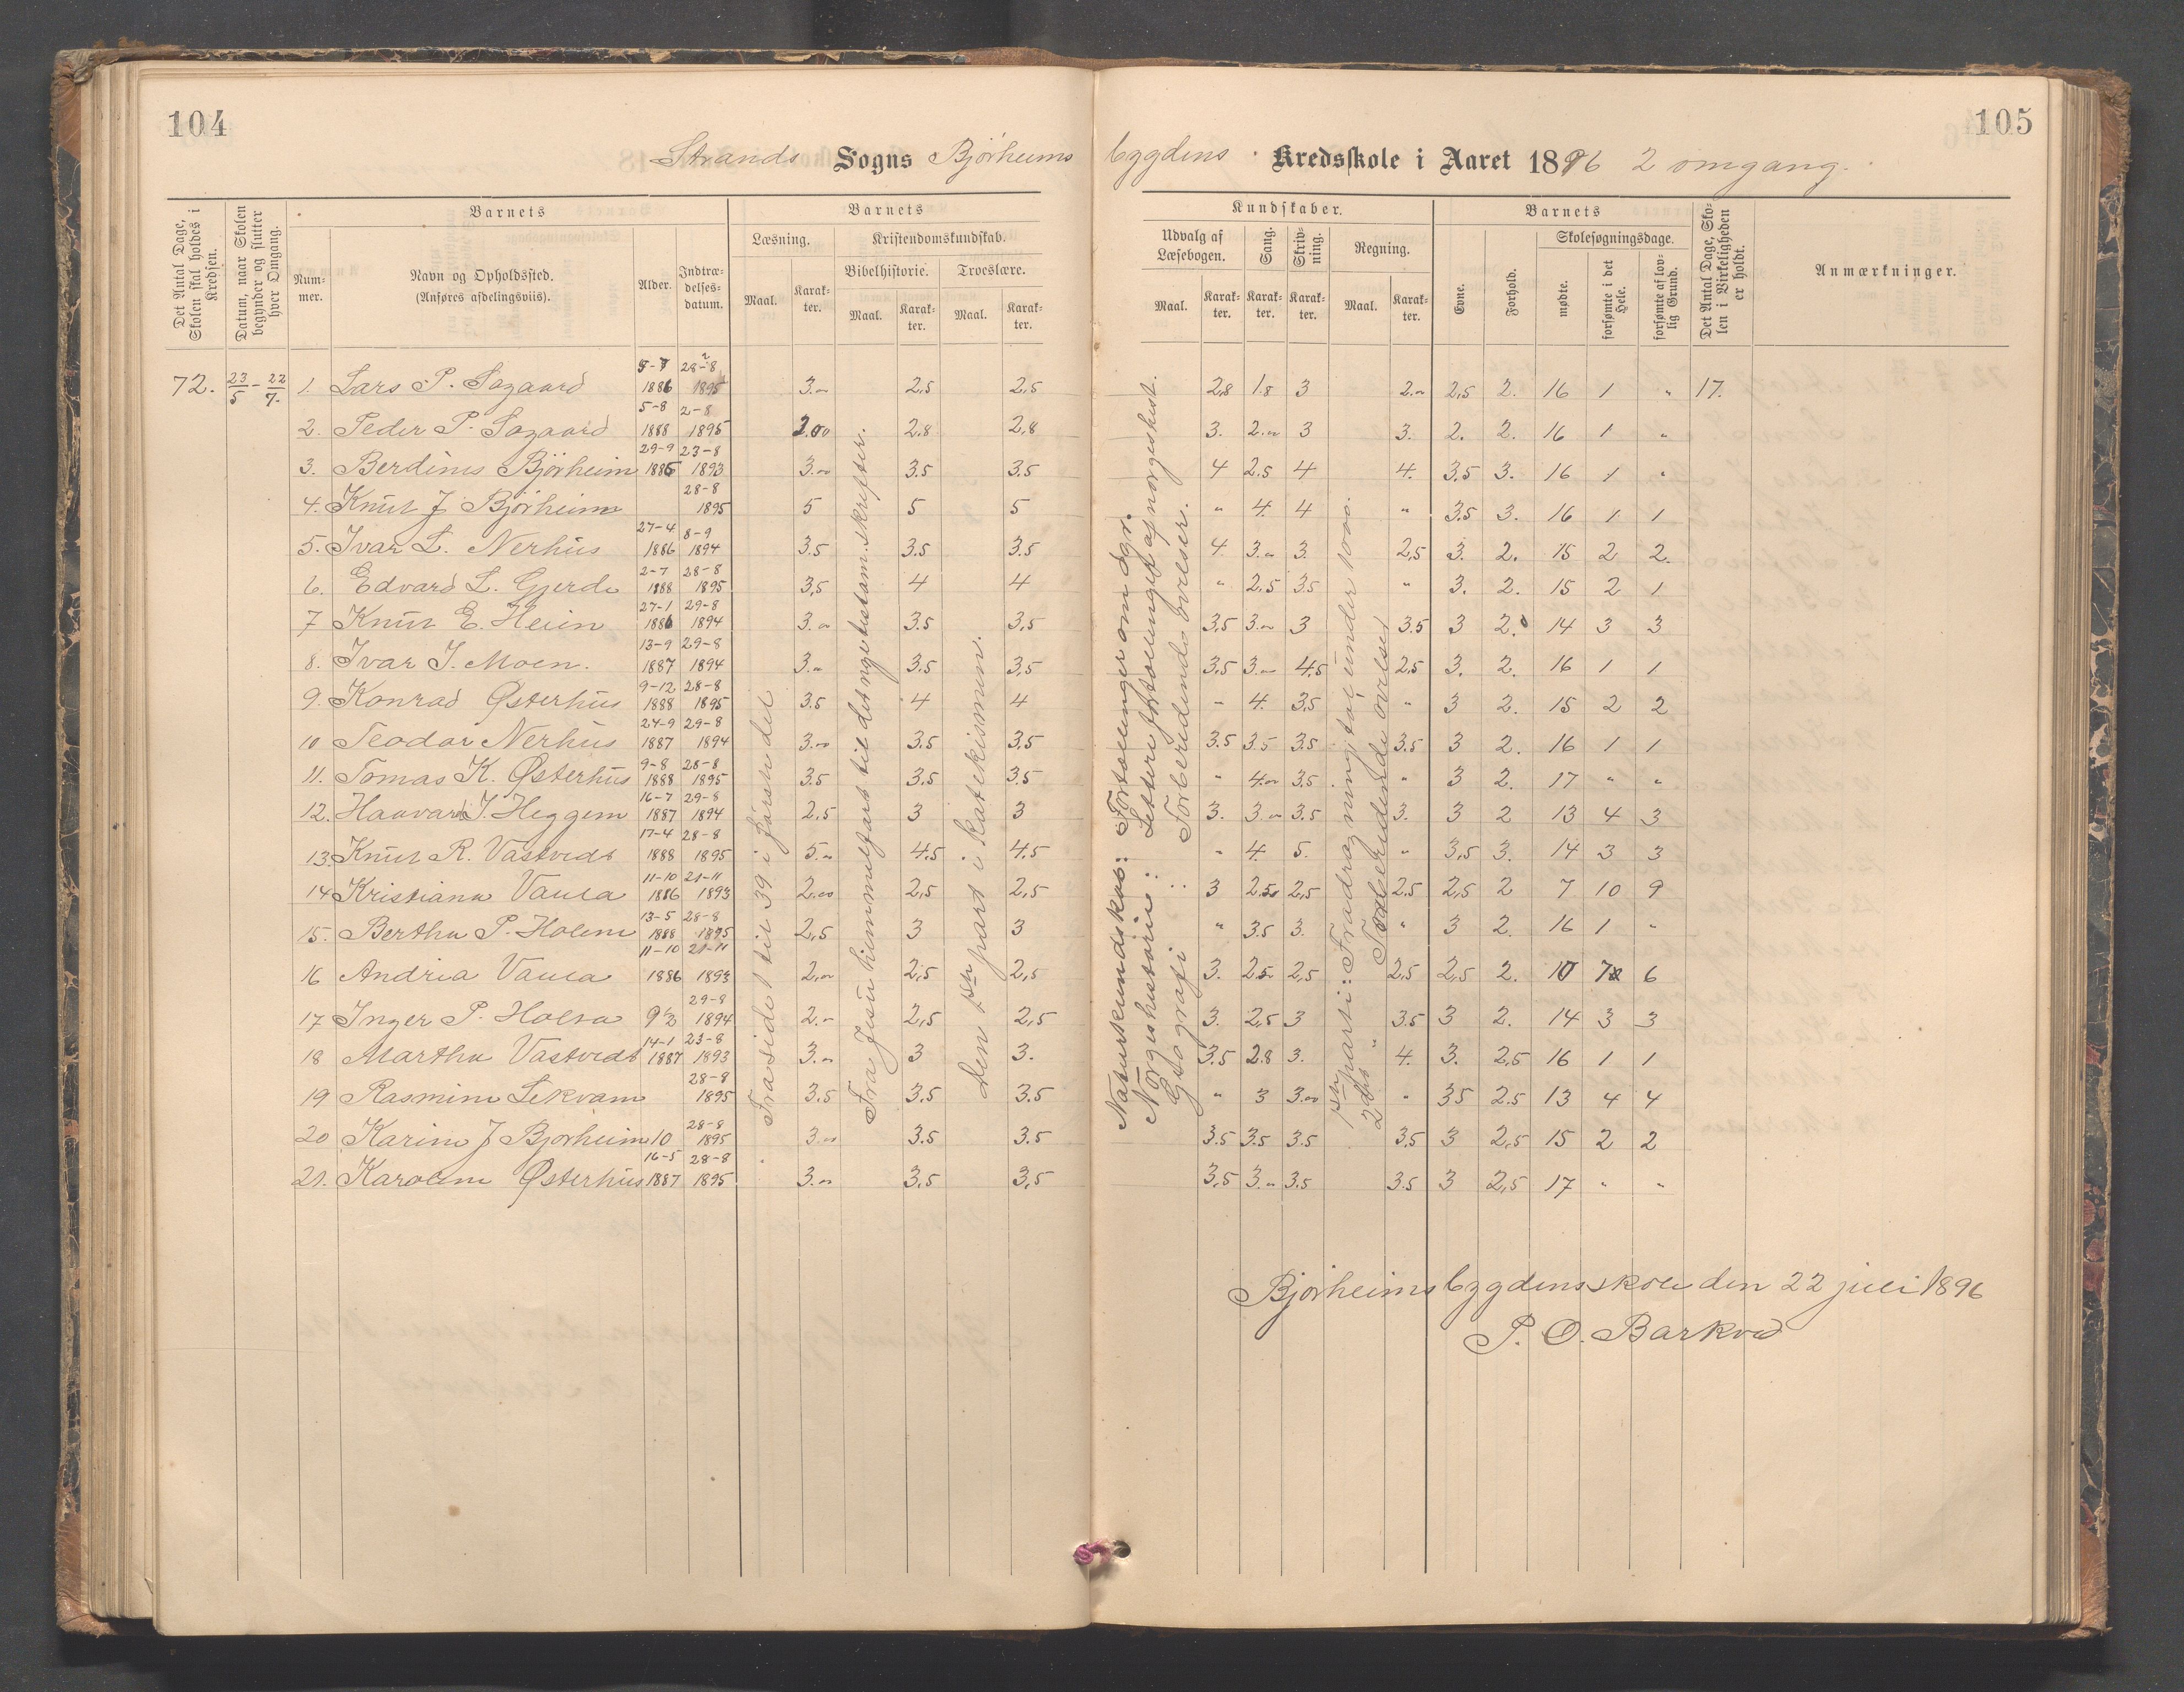 104
105
Strands Sogns Bjørheims bygdens Kredsskole i Aaret 1896 2 omgang.
Det Antal Dage, Skolen skal holdes i Kredsen.
Datum, naar Skolen begynder og slutter hver Omgang.
Barnets
Nummer.
Navn og Opholdssted. (Anføres afdelingsviis).
Alder.
Indtrædelsesdatum.
Barnets
Læsning.
Maal.
Karakter.
Kristendomskundskab.
Bibelhistorie.
Maal.
Karakter.
Troeslære.
Maal.
Karakter.
Kundskaber.
Udvalg af Læsebogen.
Maal.
Karakter.
Sang.
Karakter.
Skrivning.
Karakter.
Regning.
Maal.
Karakter.
Barnets
Evne.
Forhold.
Skolesøgningsdage.
mødte.
forsømte i det Hele.
forsømte af lovlig Grund.
Det Antal Dage, Skolen i Virkeligheden er holdt.
Anmærkninger.
72. 23/5 - 22/7. 1. Lars P. Sagaard 1886 28-8 1895 3.00 2,5 2,5 2,8 1.8 3 2.00 2,5 2. 16 1 " 17.
2. Peder P. Sagaard 5-8 1888 2-8 1895 2.00 2.8 2,8 3. 2.00 3 3. 2. 2. 16 1 "
3. Berdines Bjørheim 29-9 1885 23-8 1893 3.00 3.5 3.5 4 2.5 4 4. 3,5 3. 16 1 "
4. Knut J Bjørheim 28-8 1895 5 5 5 " 4. 4 " 3.5 3. 16 1 1
5. Ivar L. Nerhus 27-4 1886 8-9 1894 3.5 3.5 3.5 4. 3.00 3. 2,5 3. 2. 15 2 2.
6. Edvard L. Gjerde 2-7 1888 28-8 1895 3,5 4 4 " 2,5 3.5 " 3. 2. 15 2 1
7 Knut E. Heien 27-1 1886 29-8 1894 3.00 3.5 3,5 3,5 3.00 3 3.5 3 2. 14 3 3
8. Ivar J. Moen. 13-9 1887 29-8 1894 3.00 3,5 3,5 3,5 3.00 4.5 2.5 3. 2. 16 1 1
9. Konrad Østerhus 9-12 1888 28-8 1895 3.5 4 4 " 4. 3,5 " 3 2. 15 2 2
10 Teodor Nerhus 24-9 1887 29-8 1894 3.00 3.5 3.5 3.5 3.5 3.5 3.5 3 2. 16 1 1
11. Tomas K. Østerhus 9-8 1888 28-8 1895 3.5 3,5 3.5 " 4.00 3,5 " 3 2. 17 " "
12. Haavard J. Heggem 16-7 1887 29-8 1894 2,5 3 3 3. 3.00 3.5 3. 3 2 13 4 3
13. Knut R. Vastvedt 17-4 1888 28-8 1895 5.00 4.5 4.5 " 4. 5. " 3,5 3. 14 3 3
14 Kristiana Vaula 11-10 1886 21-11 1893 2.00 2,5 2,5 3 2.50 2,5 2.5 2,5 2 7 10 9
15. Bertha P. Holem 13-5 1888 28-8 1895 2,5 3 3 " 3.5 3. " 3 2. 16 1 "
16 Andrea Vaula 11-10 1886 21-11 1893 2.00 2,5 2,5 3. 2.5 2,5 2,5 2,5 2. 10 7 6
17 Inger P. Holta 9½ 29-8 1894 2.00 2,5 2,5 3. 2,5 3 3.5 3 2. 14 3 3
18 Martha Vastvedt 14-1 1887 23-8 1893 3.00 3 3. 3.5 2.8 3. 4. 3. 2,5 16 1 1
19 Rasmine Lekvam 28-8 1895 3.5 3.5 3.5 " 3 3.00 " 3.5 2.5 13 4 4
20 Karine J Bjørheim 10 28-8 1895 3.00 3.5 3.5 3.5 3.5 3.5 3,5 3 2,5 15 2 2
21. Karoline Østerhus 16-5 1887 28-8 1895 3.00 3,5 3,5 3,5 3.00 3.5 3.5 3 2,5 17 " "
Fra side 1 til 39 i
Fra Jesu himmelfart til det nye testam. skrifter.
den 1ste part i katekismen.
Naturkundskab: Fortællinger om dyr.
Norgeshistorie: Lettere fortællinger af norgeshist.
Geografi: Forberedende øvelser.
1ste parti: Fradragning tal under 1000.
2det " Forberedende øvelser
Bjørheimsbygdens skole den 22 juli 1896
P. O. Barkved